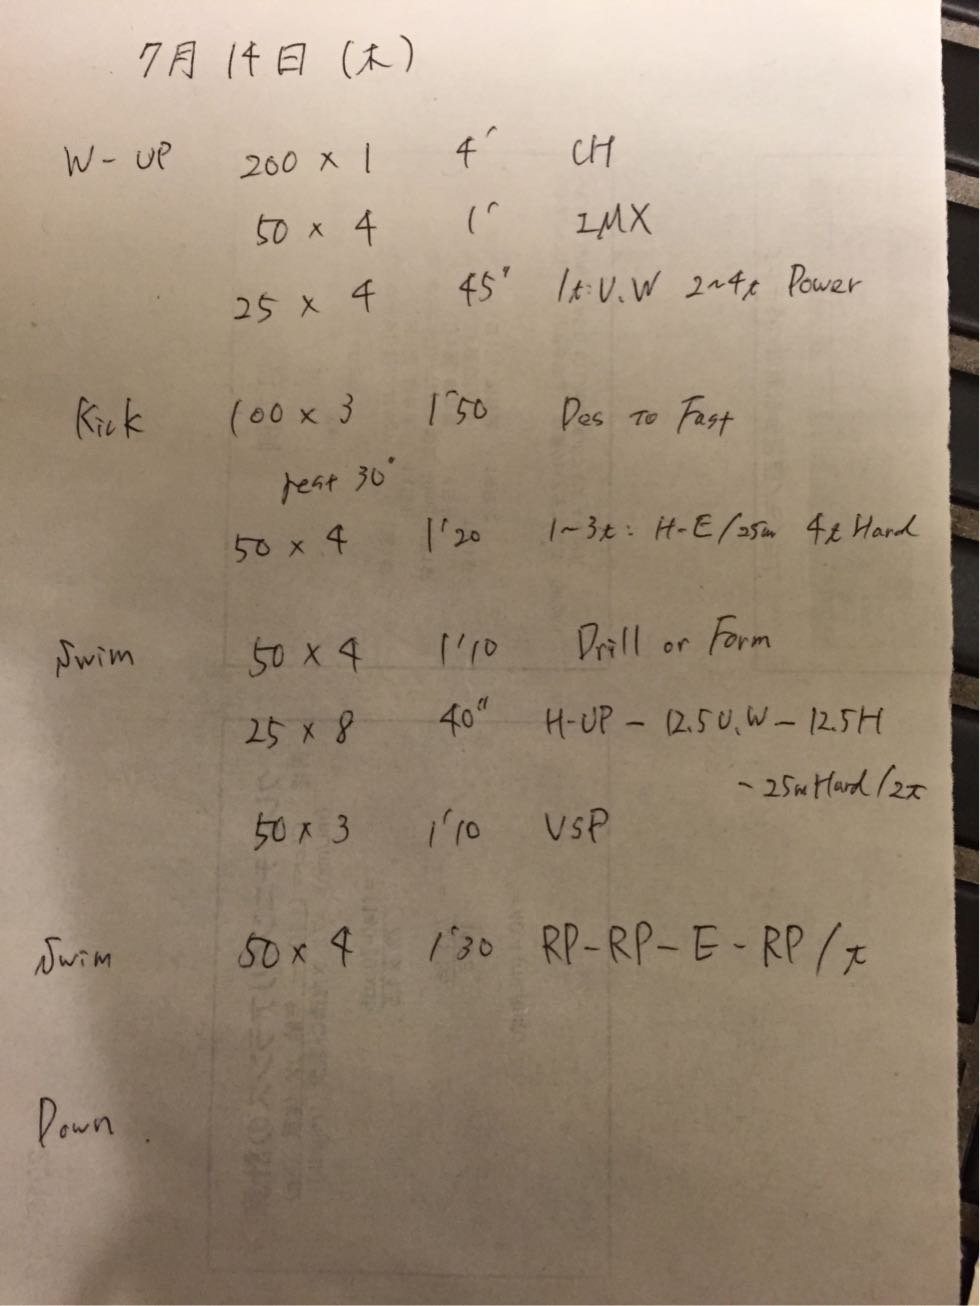 7月14日 (木)
W-UP 200 × 1 4' CH
50 × 4 1' IMX
25 × 4 45" 1t:U.W 2~4t Power
Kick 100 × 3 1'50 Des TO Fast
rest 30"
50 × 4 1'20 1~3t: H-E/25m 4t Hard
Swim 50 × 4 1'10 Drill or Form
25 × 8 40" H-UP - 12.5U.W - 12.5H
- 25m Hard/2t
50 × 3 1'10 VSP
Swim 50 × 4 1'30 RP-RP-E-RP/t
Down.